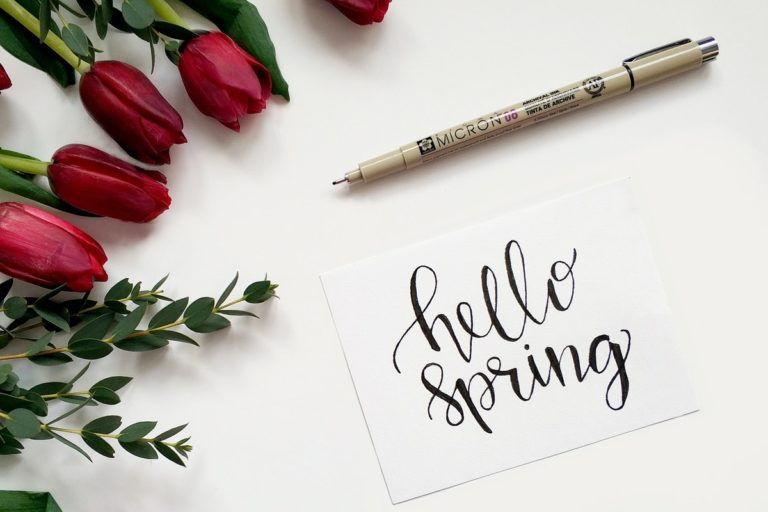 MICRON 08
ARCHIVAL INK
TINTA DE ARCHIVE
hello
spring